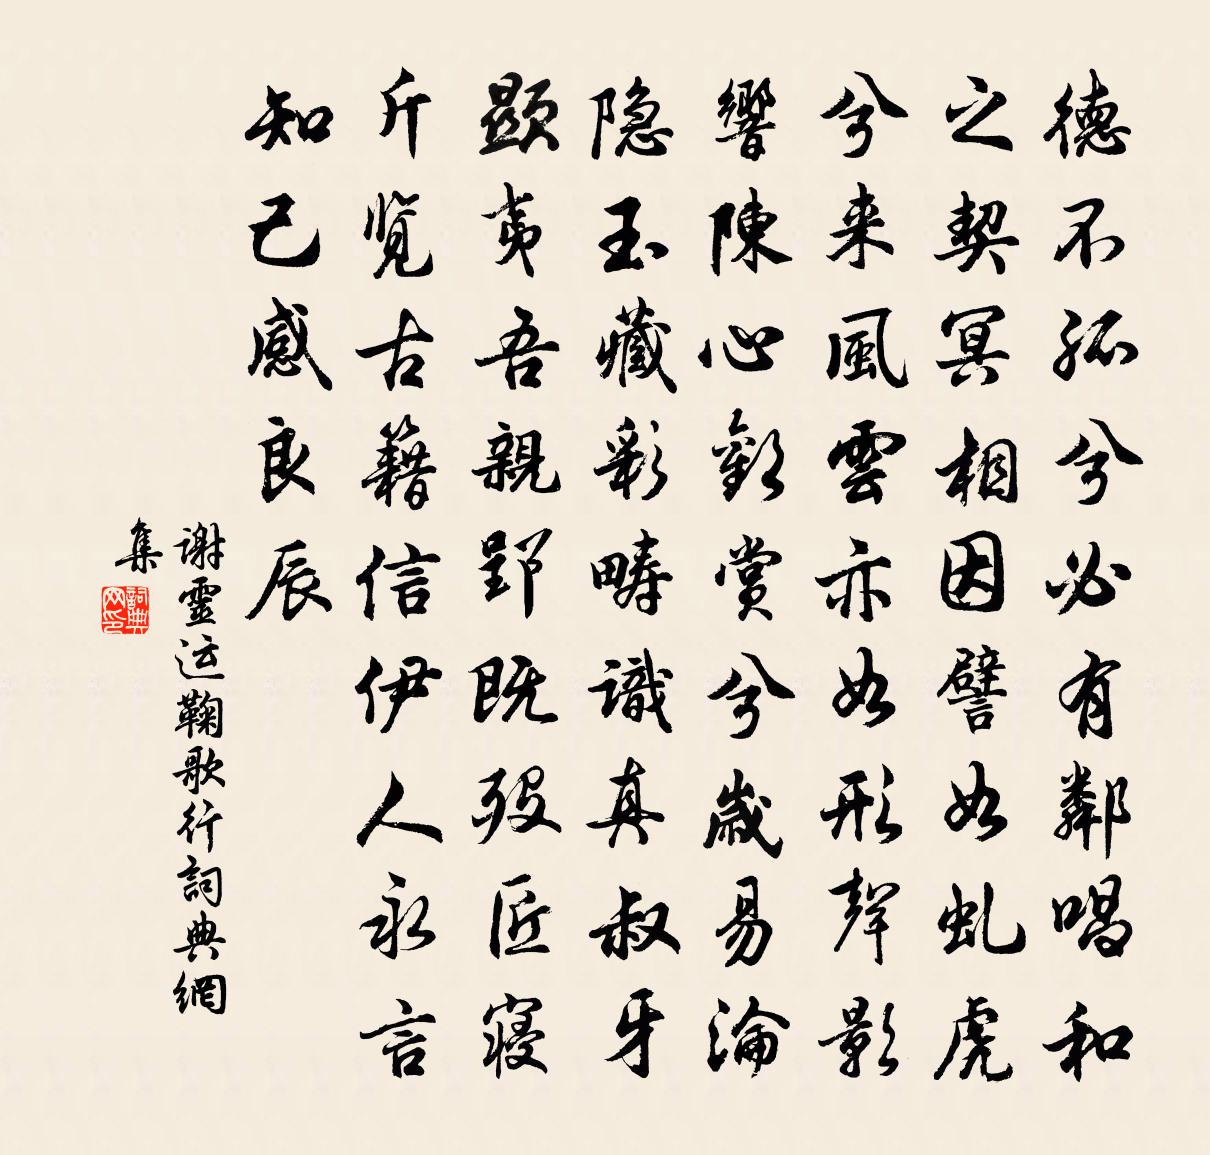 德不孤兮必有鄰唱和
之契冥相因譬如虬虎
兮来風雲亦如形聲影
響陳心歡賞兮歲易淪
隐玉藏彩疇識真叔牙
顯夷吾親郢既殁匠寝
斤览古籍信伊人永言
知己感良辰
谢靈运鞠歌行詞典網
集
詞典
网印